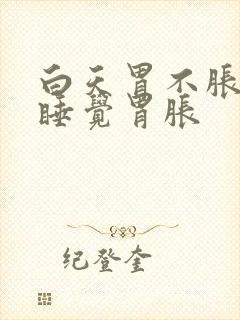 白天胃不脹
睡覺胃脹
纪登奎